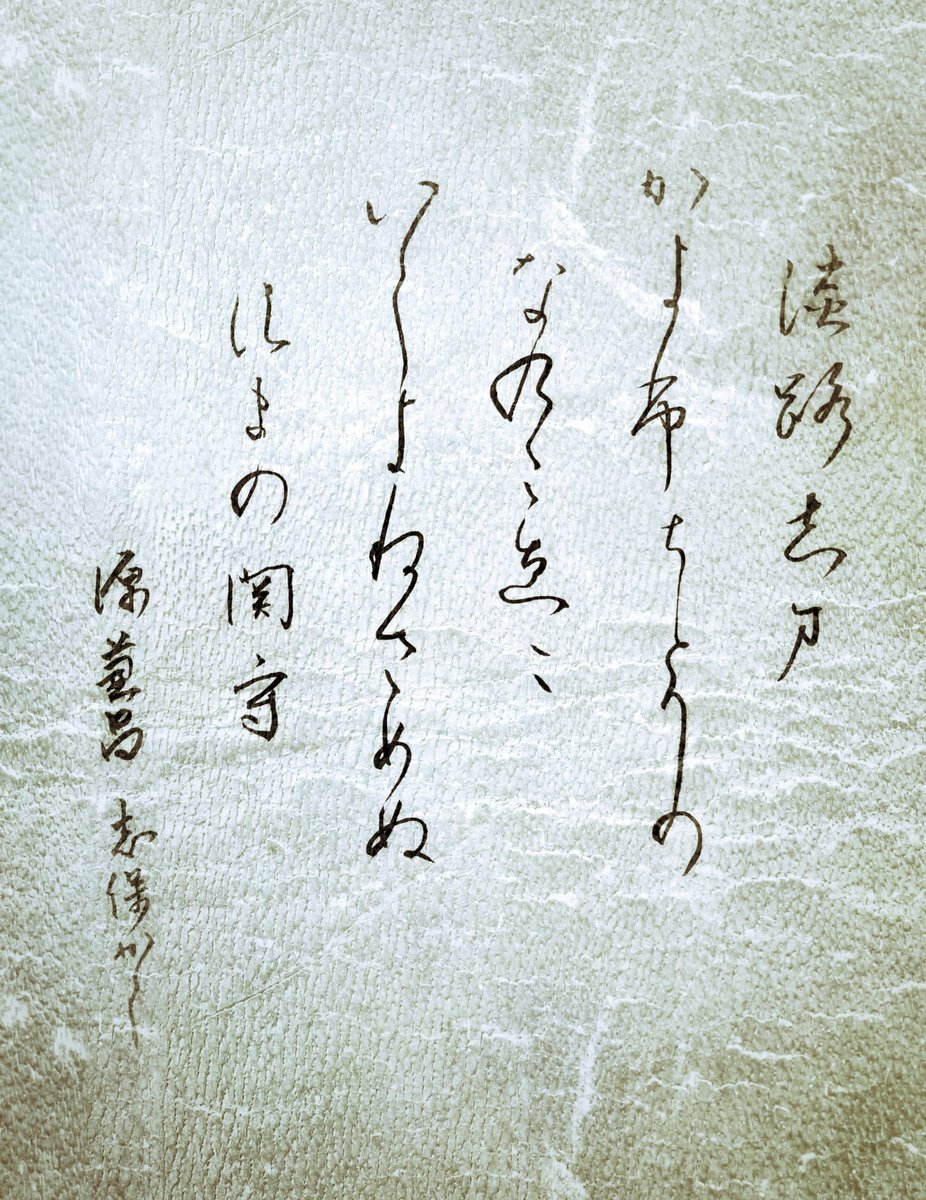 淡路志万
かよ布ちとりの
な九こ恵に
いくよねさめぬ
須まの関守
源兼昌 志保かく